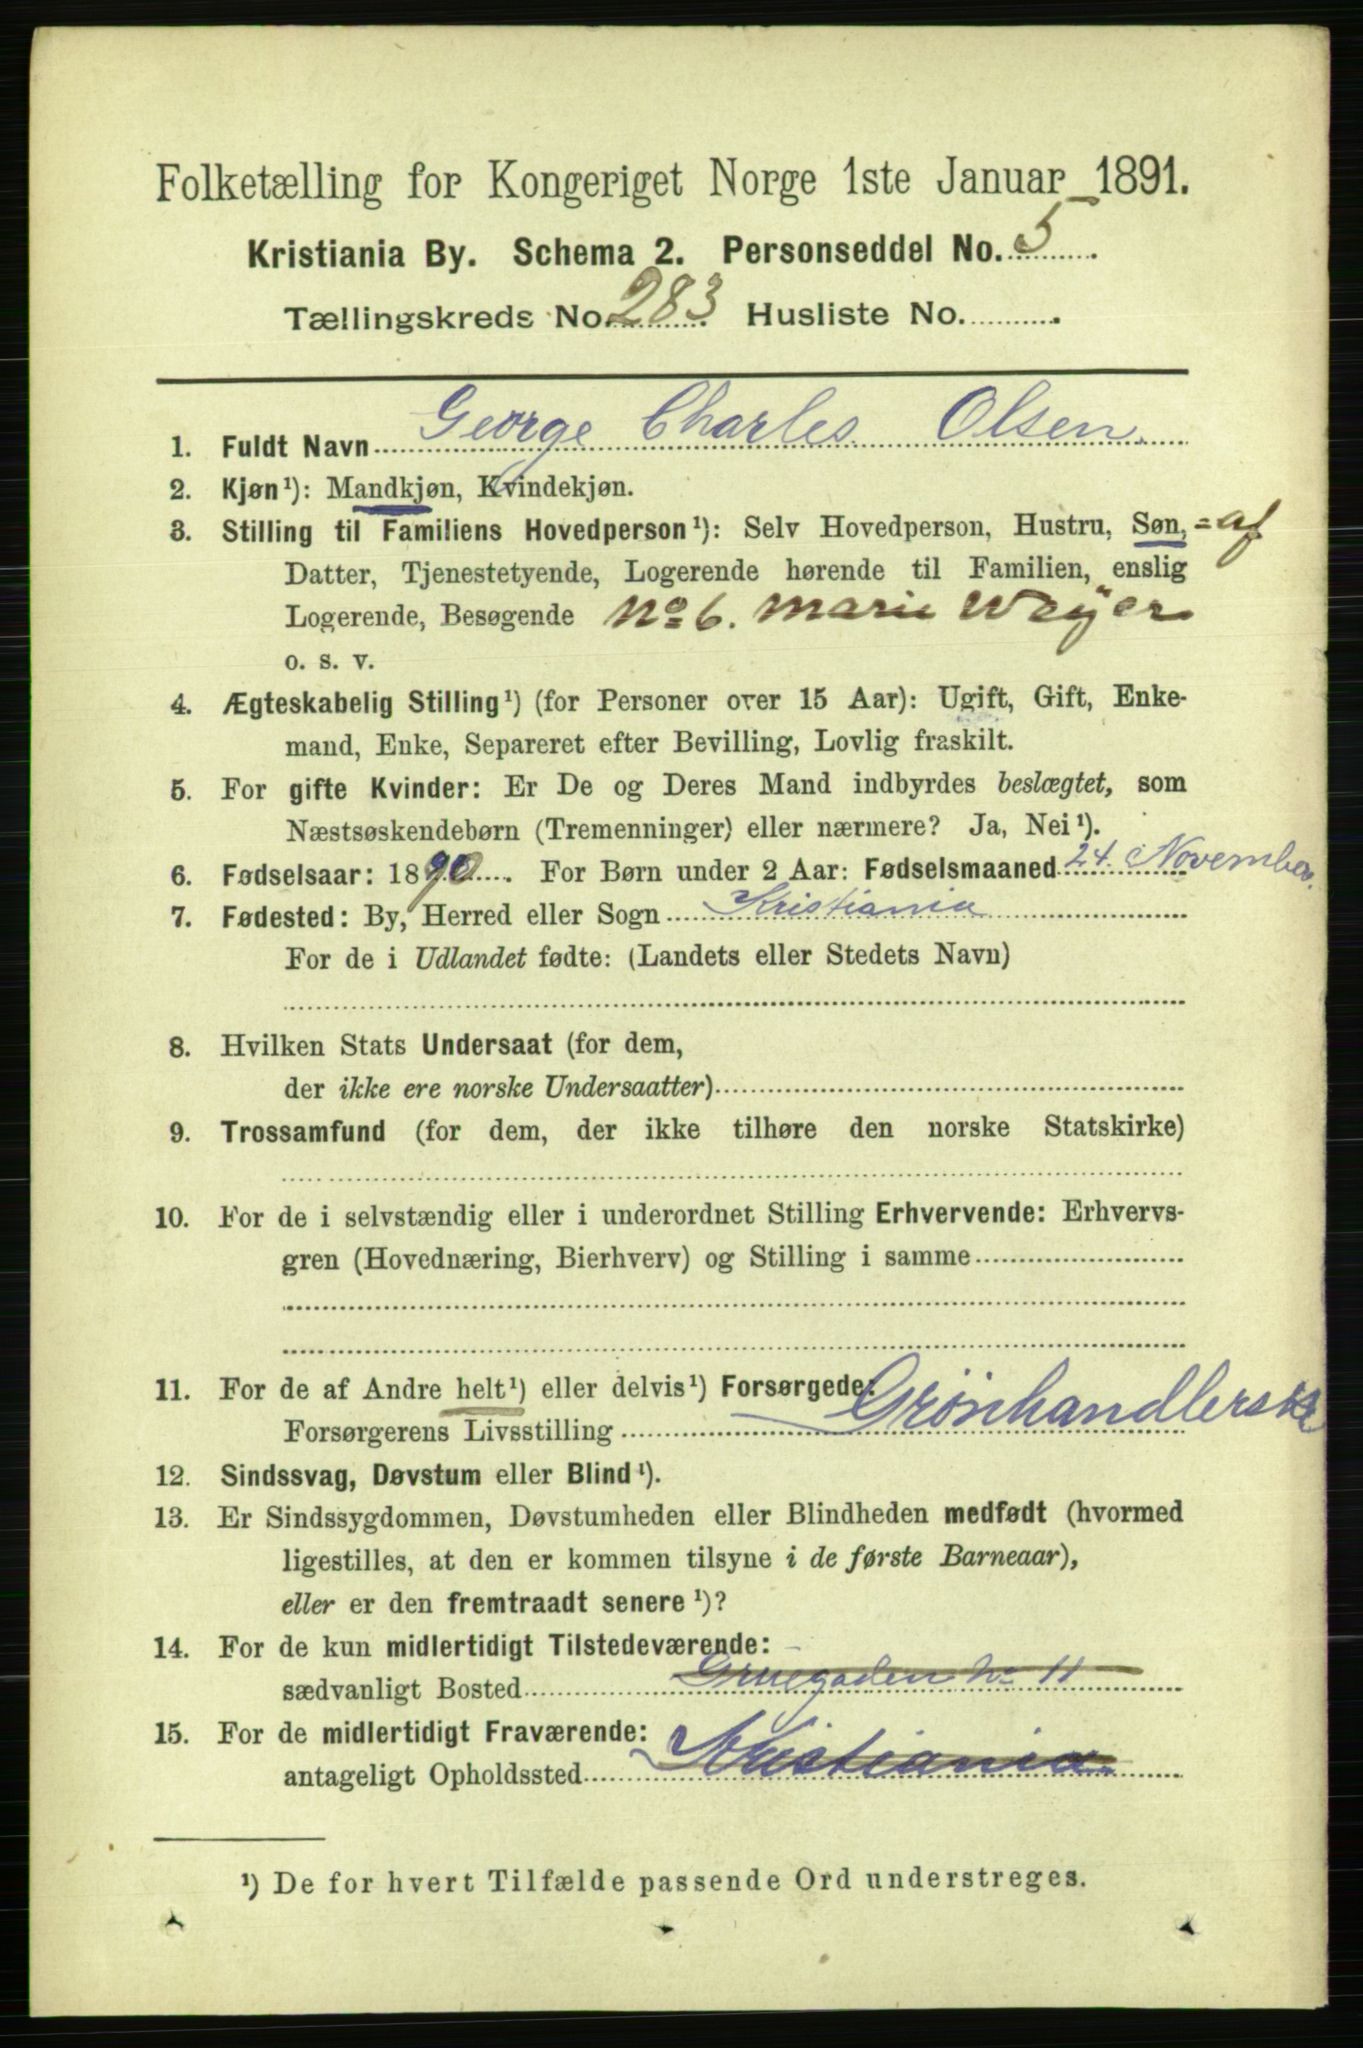 Folketælling for Kongeriget Norge 1ste Januar 1891.
Kristiania By. Schema 2. Personseddel No. 5
Tællingskreds No. 283 Husliste No.
1. Fuldt Navn George Charles Olsen
2. Kjøn¹): Mandkjøn, Kvindekjøn.
3. Stilling til Familiens Hovedperson¹): Selv Hovedperson, Hustru, Søn, = af
Datter, Tjenestetyende, Logerende hørende til Familien, enslig
Logerende, Besøgende No 6. Marie Weyer
o. s. v.
4. Ægteskabelig Stilling¹) (for Personer over 15 Aar): Ugift, Gift, Enke-
mand, Enke, Separeret efter Bevilling, Lovlig fraskilt.
5. For gifte Kvinder: Er De og Deres Mand indbyrdes beslægtet, som
Næstsøskendebørn (Tremenninger) eller nærmere? Ja, Nei¹).
6. Fødselsaar: 1890. For Børn under 2 Aar: Fødselsmaaned 24. November.
7. Fødested: By, Herred eller Sogn Kristiania
For de i Udlandet fødte: (Landets eller Stedets Navn)
8. Hvilken Stats Undersaat (for dem,
der ikke ere norske Undersaatter)
9. Trossamfund (for dem, der ikke tilhøre den norske Statskirke)
10. For de i selvstændig eller i underordnet Stilling Erhvervende: Erhvervs-
gren (Hovednæring, Bierhverv) og Stilling i samme
11. For de af Andre helt¹) eller delvis¹) Forsørgede:
Forsørgerens Livsstilling Grønhandlerske
12. Sindssvag, Døvstum eller Blind¹).
13. Er Sindssygdommen, Døvstumheden eller Blindheden medfødt (hvormed
ligestilles, at den er kommen tilsyne i de første Barneaar),
eller er den fremtraadt senere¹)?
14. For de kun midlertidigt Tilstedeværende:
sædvanligt Bosted Gruegaden No 11
15. For de midlertidigt Fraværende:
antageligt Opholdssted Kristiania
¹) De for hvert Tilfælde passende Ord understreges.